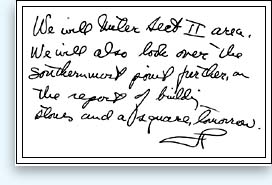 We will enter Sect II area.
We will also look over the
Southernmost point further, on
the report of building
stones and a square, tomorrow.